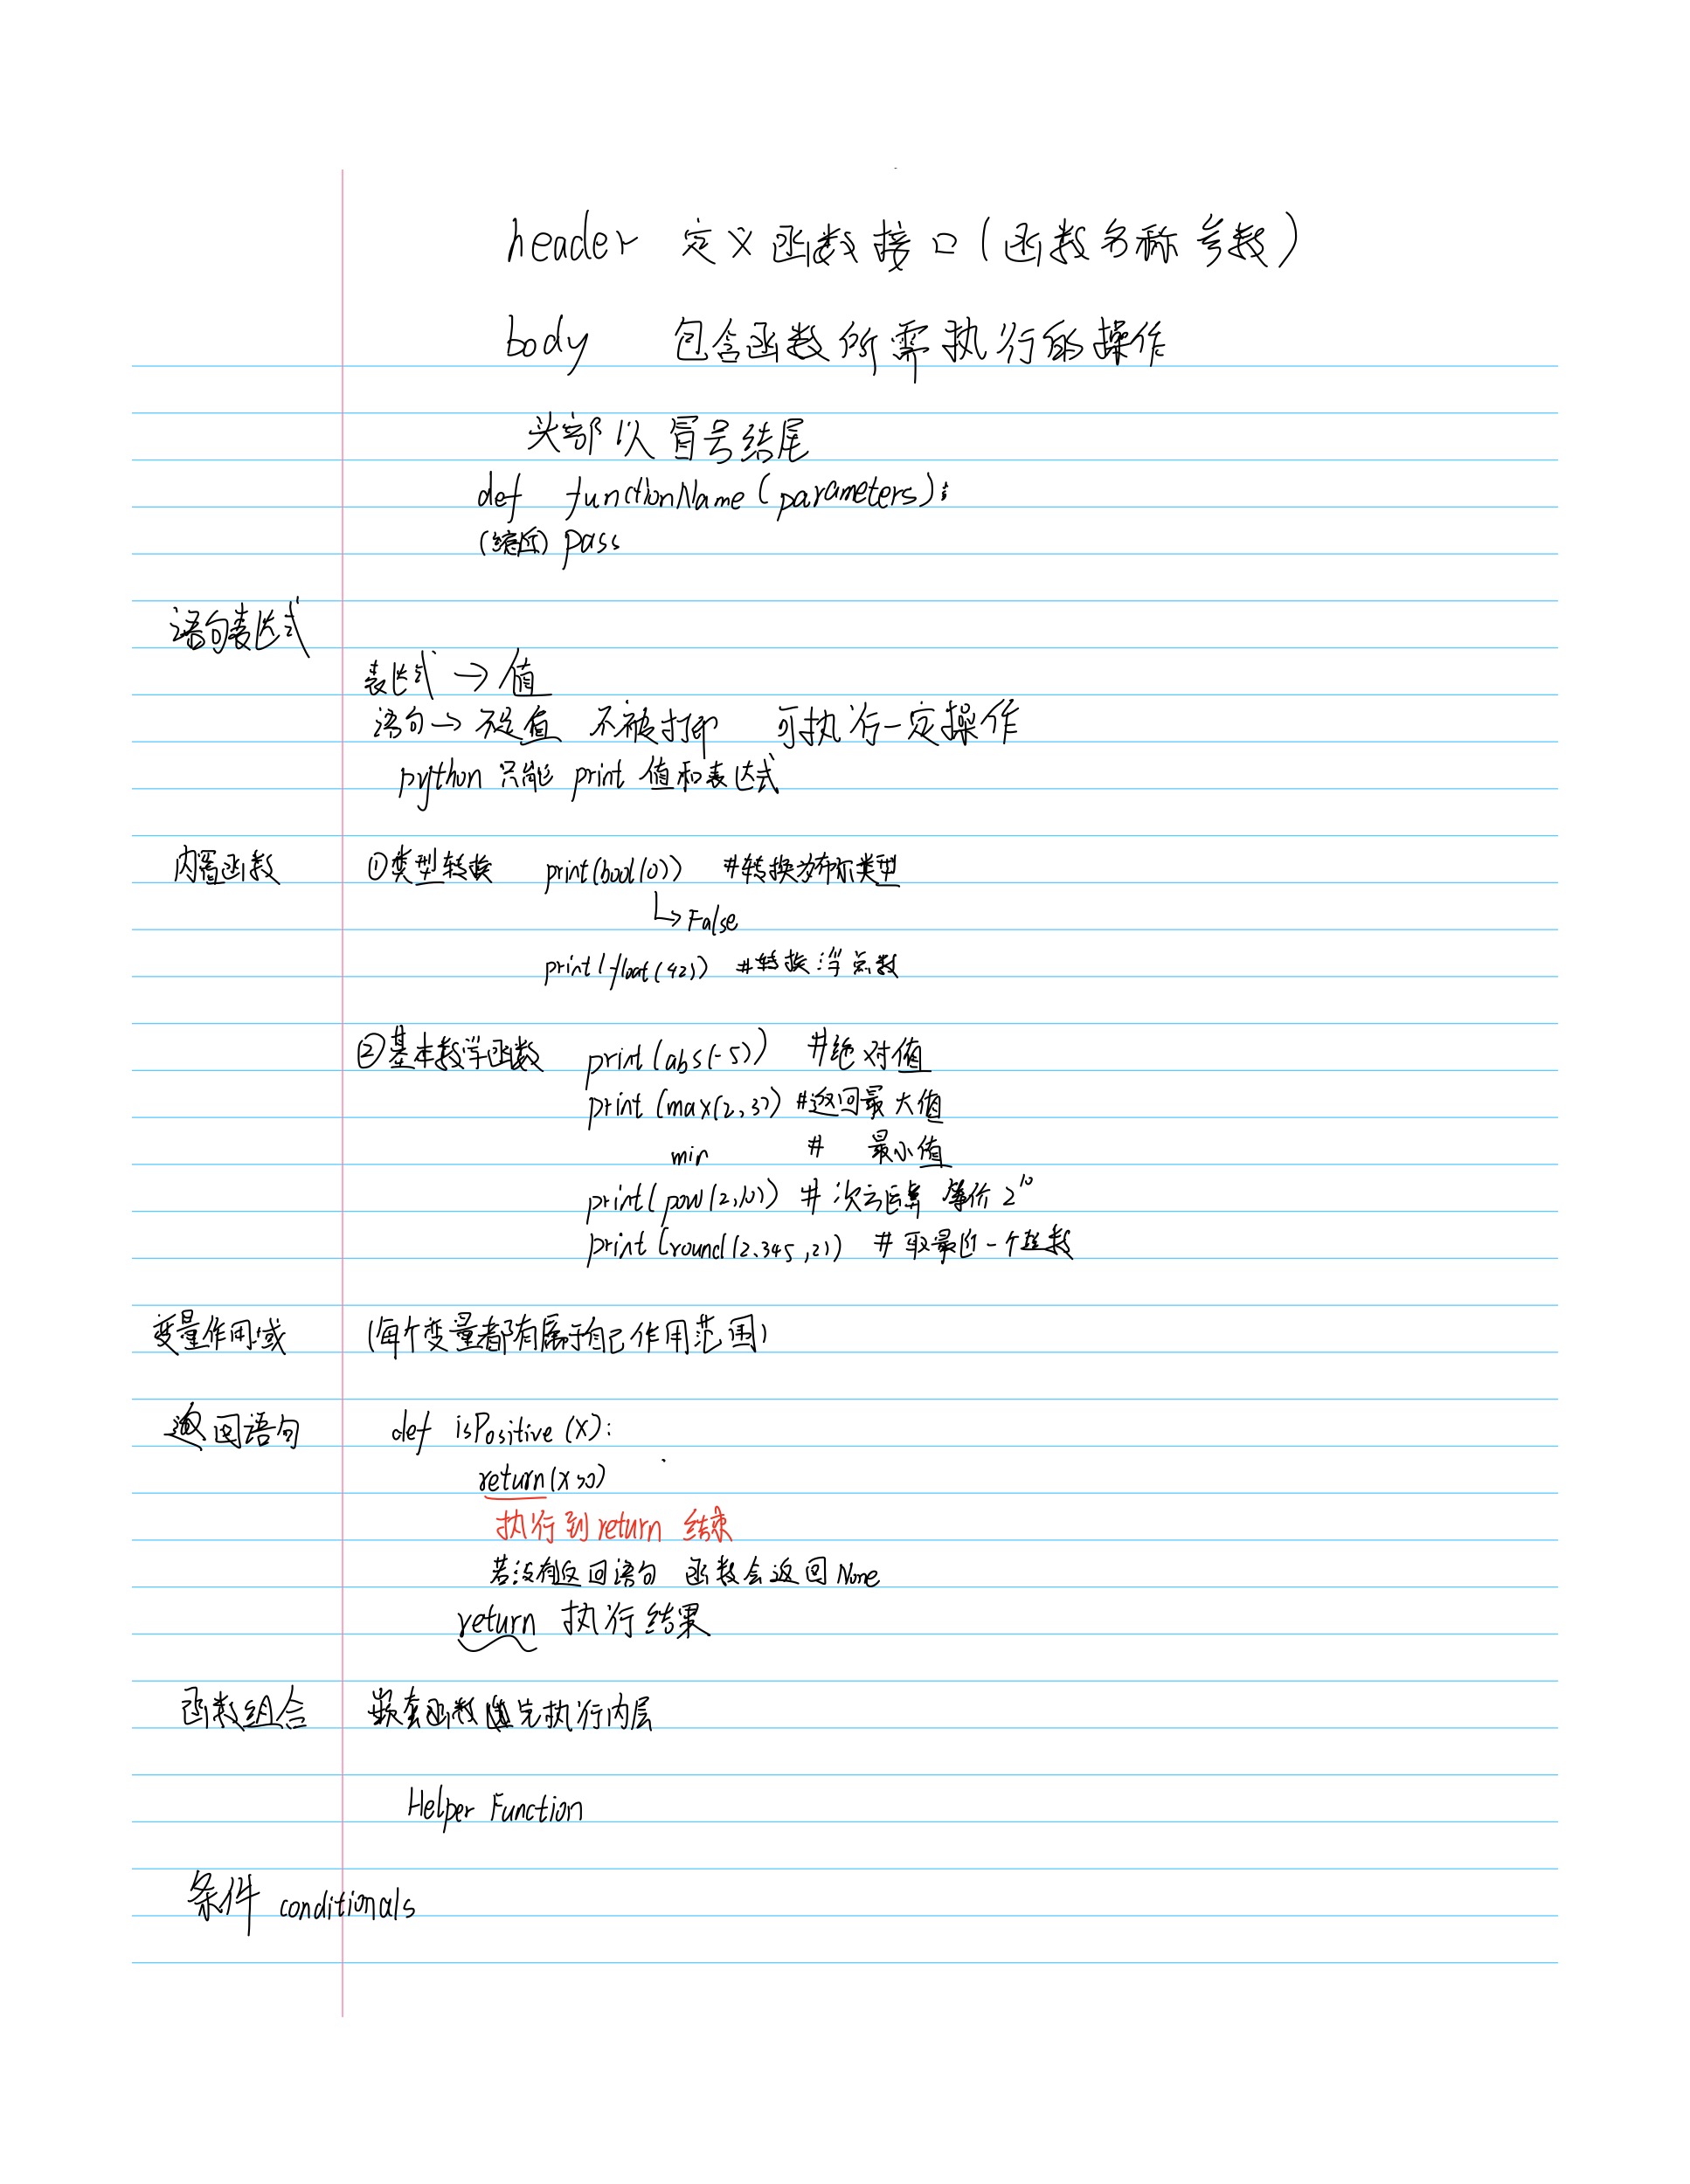 header 定义函数接口(函数名称 参数)
body 包含函数所需执行的操作
头部以冒号结尾
def functionName(parameters):
(缩进) pass
语句表达式
表达式 → 值
语句 → 不是值 不被打印 可执行一定操作
python 只能 print 值和表达式
内置函数 ①类型转换 print(bool(0)) #转换为布尔类型
↳ False
print(float(42)) #转换浮点数
②基本数学函数 print(abs(-5)) #绝对值
print(max(2,3)) #返回最大值
min # 最小值
print(pow(2,10)) # 次方运算 等价 2¹⁰
print(round(2.345,2)) # 取最近一个整数
变量作用域 (每个变量都有属于自己作用范围)
返回语句 def isPositive(x):
return(x>0)
执行到return 结束
若没有返回语句 函数会返回None
return 执行结果
函数组合 嵌套函数 先执行内层
Helper Function
条件 conditionals